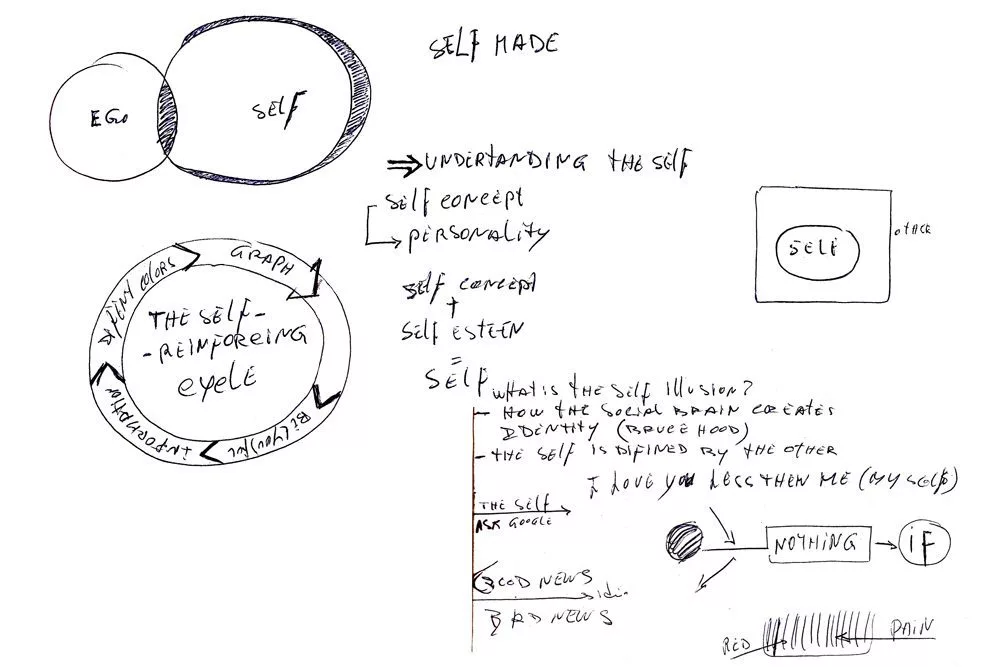 SELF MADE
EGO
SELF
⇒ UNDERTANDING THE SELF
SELF CONCEPT
PERSONALITY
SELF CONCEPT
+
SELF ESTEEN
=
SELF
SELF
GRAPH
COLORS
INFORMATION
THE SELF-
-REINFORCING
CYCLE
WHAT IS THE SELF ILLUSION?
- HOW THE SOCIAL BRAIN CREATES
IDENTITY (BRUCE HOOD)
- THE SELF IS DIFINED BY THE OTHER
I LOVE YOU LESS THEN ME (MY SELF)
THE SELF
ASK GOOGLE
NOTHING
IF
GOOD NEWS
BAD NEWS
RED
PAIN